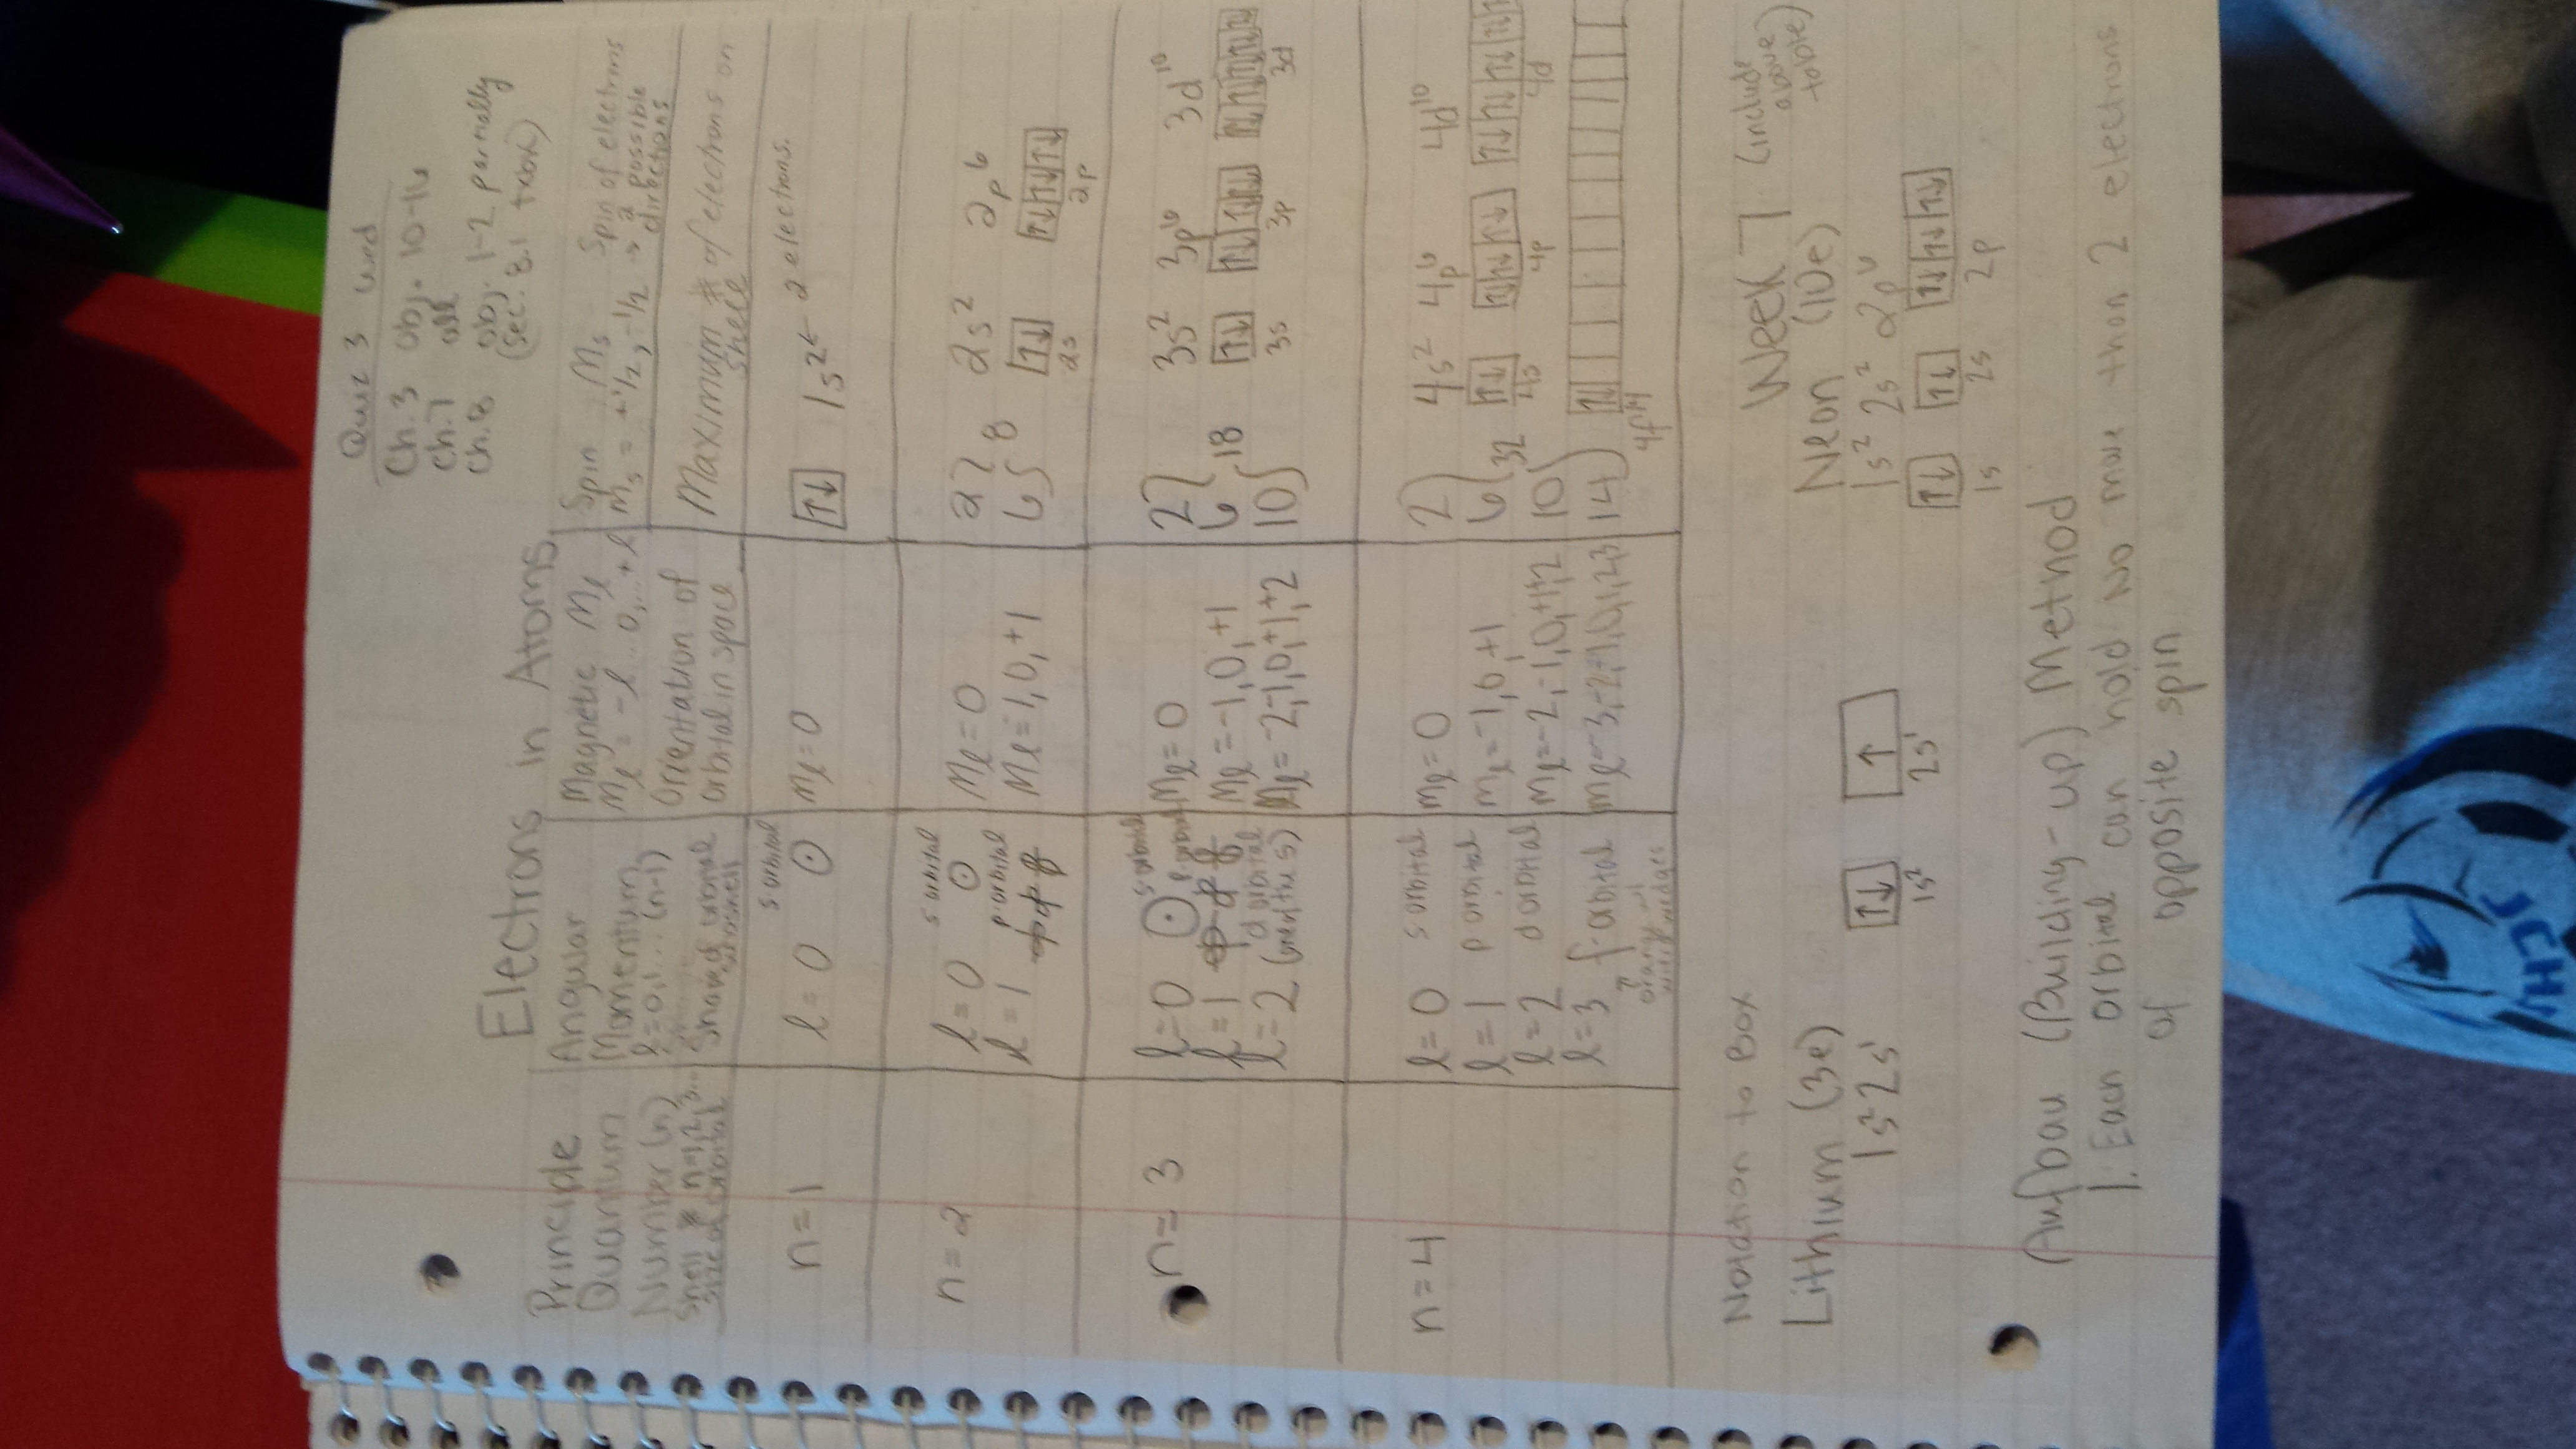 Quiz 3 Wed
Ch. 3 obj. 10-16
Ch. 7 all
Ch. 8 obj. 1-2 partially
(Sec. 8.1 txbk)
Electrons in Atoms
Principle Quantum Number (n)
Shell n=1,2,3...
Angular Momentum
l=0,1...(n-1)
Magnetic Ml
Ml = -l...0,...+l
Orientation of orbital in space
Spin Ms Spin of electrons
Ms = +1/2, -1/2 → 2 possible directions
Maximum # of electrons on shell
n=1
l=0
s orbital
Ml=0
↑↓ 1s² ← 2 electrons.
n=2
l=0 s orbital
l=1 p orbital
Ml=0
Ml=1,0,+1
2
6
8
2s² 2p⁶
↑↓ ↑↓ ↑↓ ↑↓
2s 2p
n=3
l=0 s orbital
l=1 p orbital
l=2 d orbital
Ml=0
Ml=-1,0,+1
Ml=-2,-1,0,+1,+2
2
6
10
18
3s² 3p⁶ 3d¹⁰
↑↓ ↑↓ ↑↓ ↑↓ ↑↓ ↑↓ ↑↓ ↑↓ ↑↓
3s 3p 3d
n=4
l=0 s orbital
l=1 p orbital
l=2 d orbital
l=3 f orbital
Ml=0
Ml=-1,0,+1
Ml=-2,-1,0,+1,2
Ml=-3,-2,-1,0,1,2,3
2
6
10
14
32
4s² 4p⁶ 4d¹⁰
↑↓ ↑↓ ↑↓ ↑↓ ↑↓ ↑↓ ↑↓ ↑↓ ↑↓
4s 4p 4d
↑↓
4f14
Week 7 (include above table)
Notation to Box
Lithium (3e)
1s² 2s¹
↑↓ ↑
1s² 2s¹
Neon (10e)
1s² 2s² 2p⁶
↑↓ ↑↓ ↑↓ ↑↓ ↑↓
1s 2s 2p
(Aufbau (Building-up) Method
1. Each orbital can hold no more than 2 electrons
of opposite spin